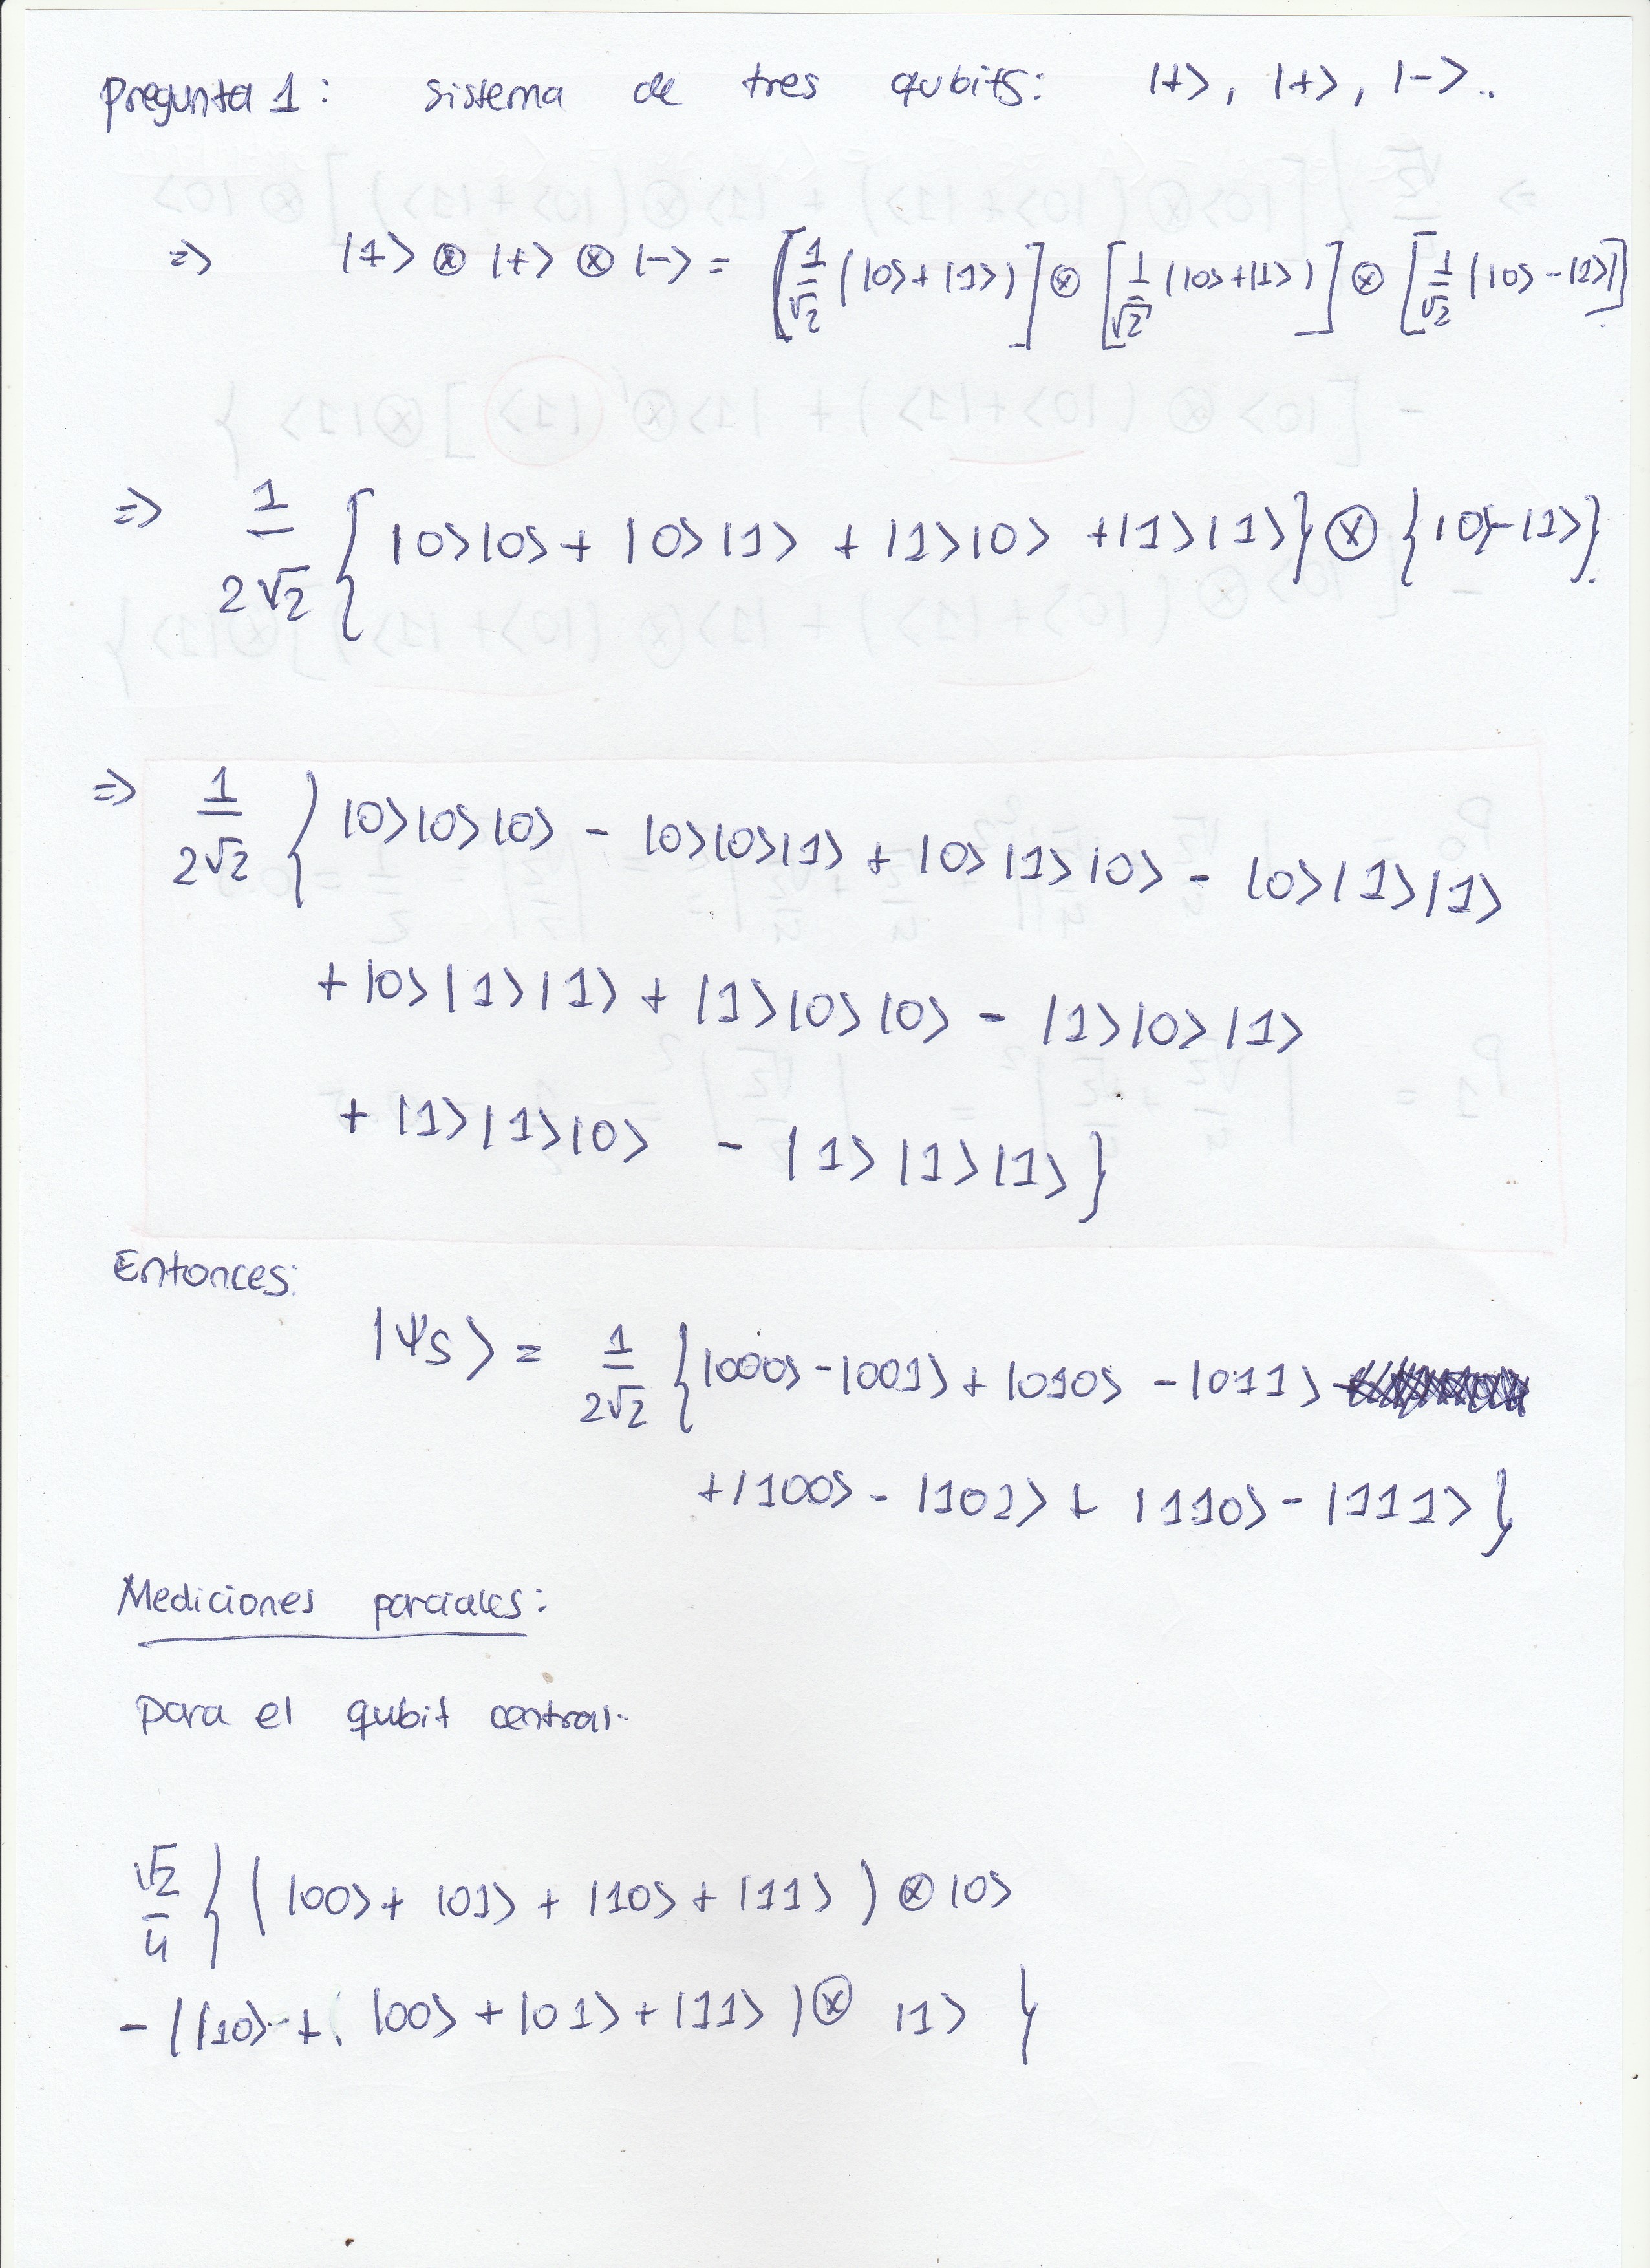 Pregunta 1: sistema de tres qubits: |+>, |+>, |->..
=> |+> ⊗ |+> ⊗ |-> = [1/√2 (|0>+|1>)] ⊗ [1/√2 (|0>+|1>)] ⊗ [1/√2 (|0>-|1>)]
=> 1/2√2 { |0>|0> + |0>|1> + |1>|0> + |1>|1> } ⊗ { |0>-|1> }
=> 1/2√2 { |0>|0>|0> - |0>|0>|1> + |0>|1>|0> - |0>|1>|1>
+ |0>|1>|1> + |1>|0>|0> - |1>|0>|1>
+ |1>|1>|0> - |1>|1>|1> }
Entonces:
|Ψs> = 1/2√2 { |000> - |001> + |010> - |011>
+ |100> - |101> + |110> - |111> }
Mediciones parciales:
para el qubit central.
√2/4 { ( |00> + |01> + |10> + |11> ) ⊗ |0>
- ( |10> + ( |00> + |01> + |11> ) ⊗ |1> }